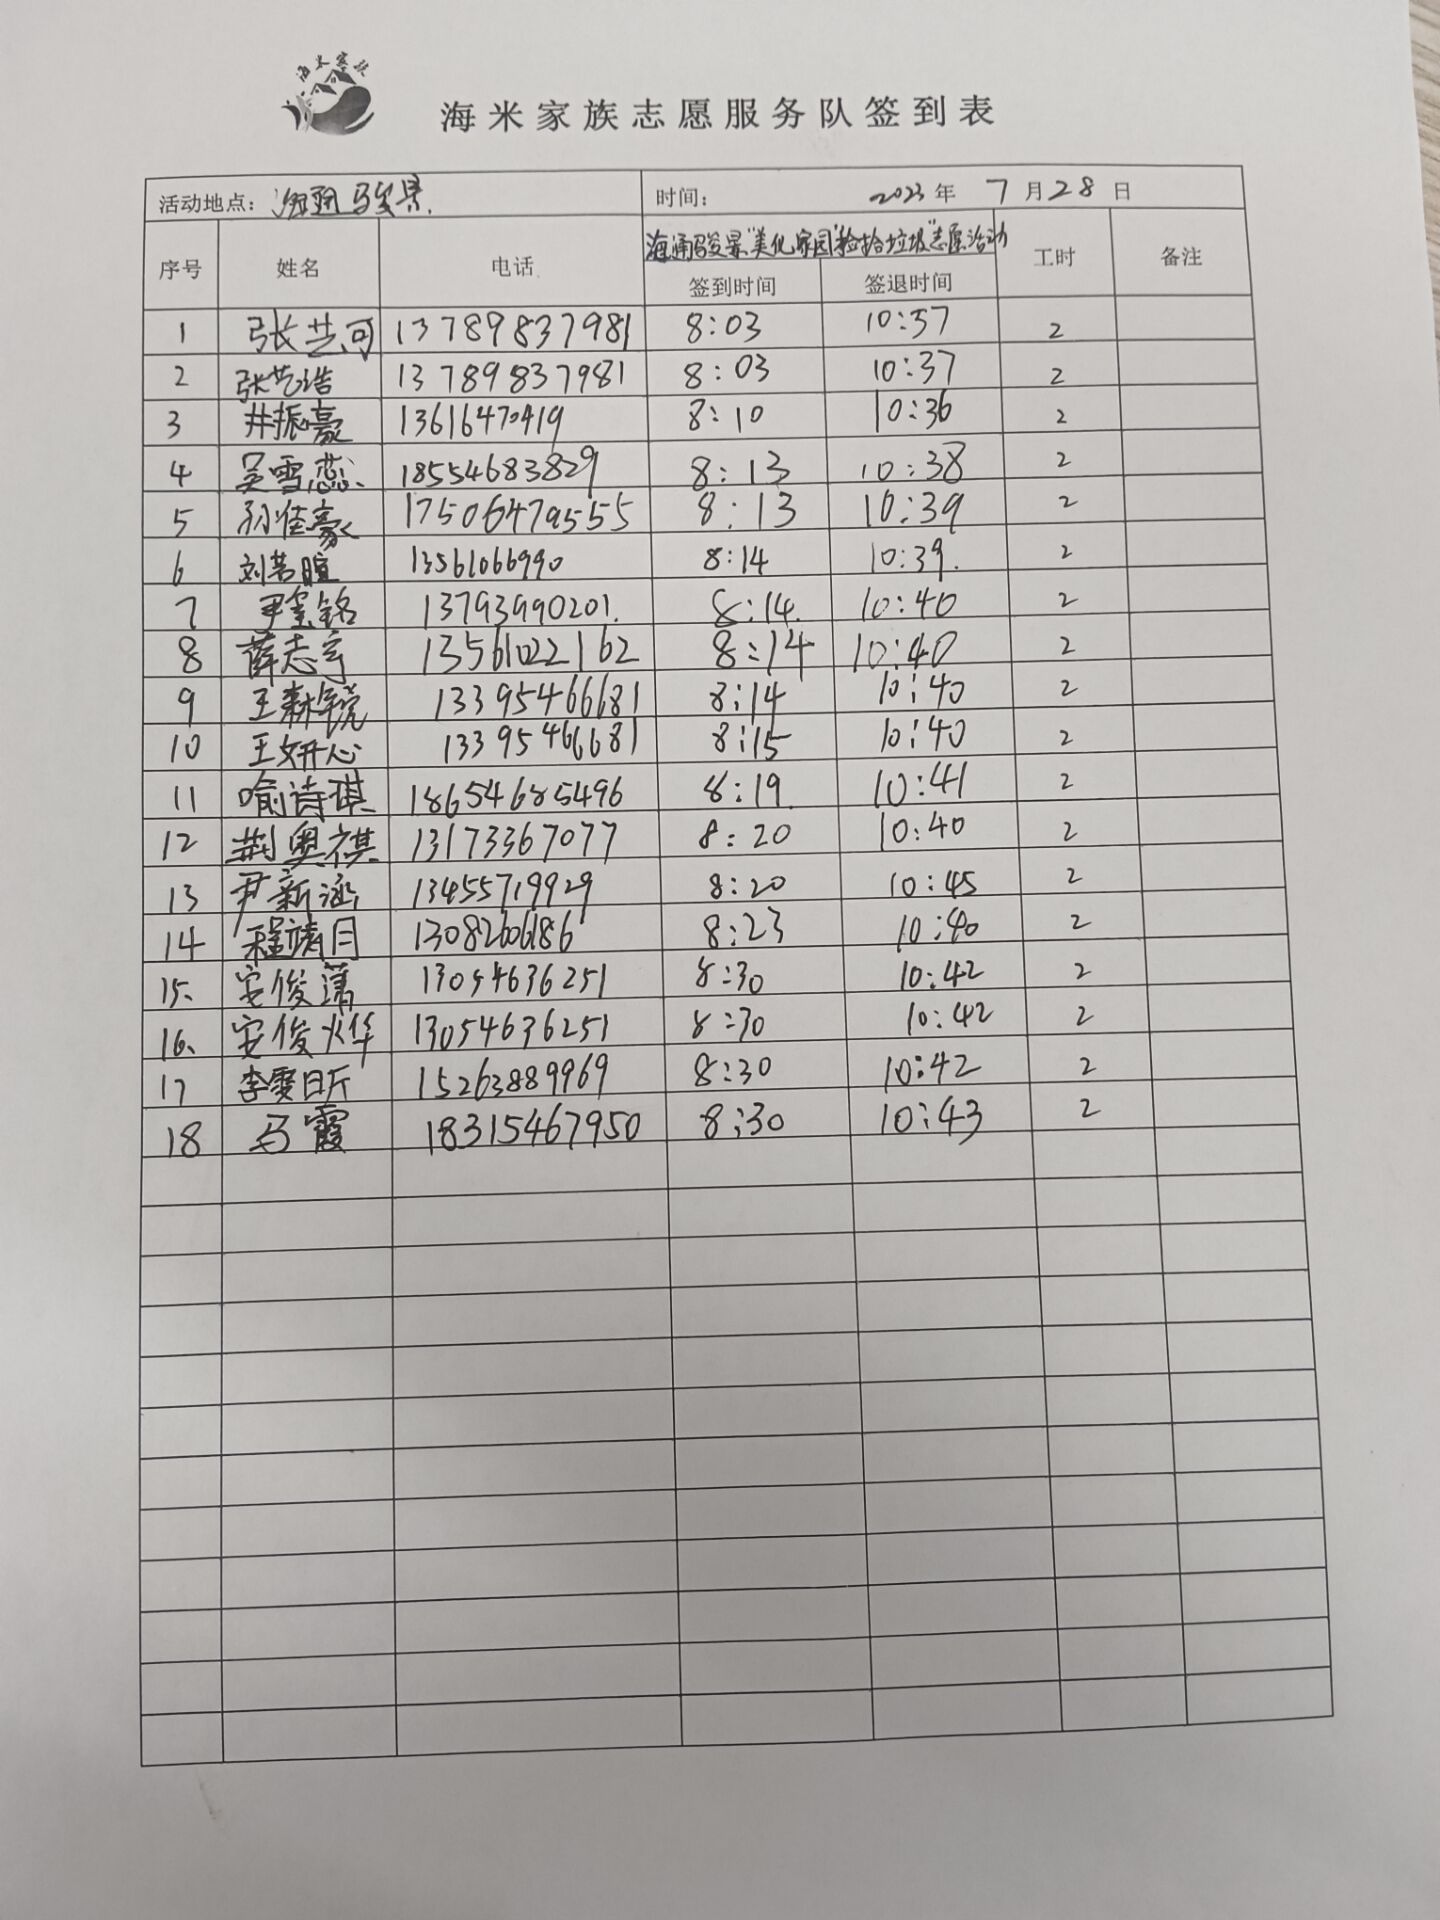 海米家族
海米家族志愿服务队签到表
活动地点：海通骏景. 时间： 2023年 7月28日
海通骏景"美化家园"捡拾垃圾"志愿活动
序号 姓名 电话 签到时间 签退时间 工时 备注
1 张芸可 13789837981 8:03 10:37 2
2 张艺浩 13789837981 8:03 10:37 2
3 井振豪 13616470419 8:10 10:36 2
4 吴雪蕊 18554683829 8:13 10:38 2
5 孙佳豪 17506479555 8:13 10:39 2
6 刘若暄 13561066990 8:14 10:39. 2
7 尹玺铭 13793990201. 8:14. 10:40 2
8 薛志宇 13561022162 8:14 10:40 2
9 王森 13395466681 8:14 10:40 2
10 王妍心 13395466681 8:15 10:40 2
11 喻诗琪 18654685496 8:19 10:41 2
12 荆奥祺 13173367077 8:20 10:40 2
13 尹新涵 13455719929 8:20 10:45 2
14 程靖月 13082606186 8:23 10:40 2
15、 安俊潇 13054636251 8:30 10:42 2
16、 安俊烨 13054636251 8:30 10:42 2
17 李雯昕 15263889969 8:30 10:42 2
18 马霞 18315467950 8:30 10:43 2